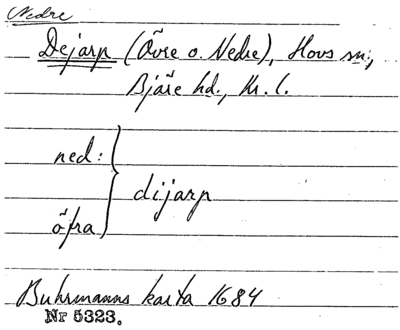 Nedre
Dejarp (Övre o. Nedre), Hovs sn;,
Bjäre hd., Kr. l.
ned:
dijarp
öfra
Buhrmanns karta 1684
Nr 5323.